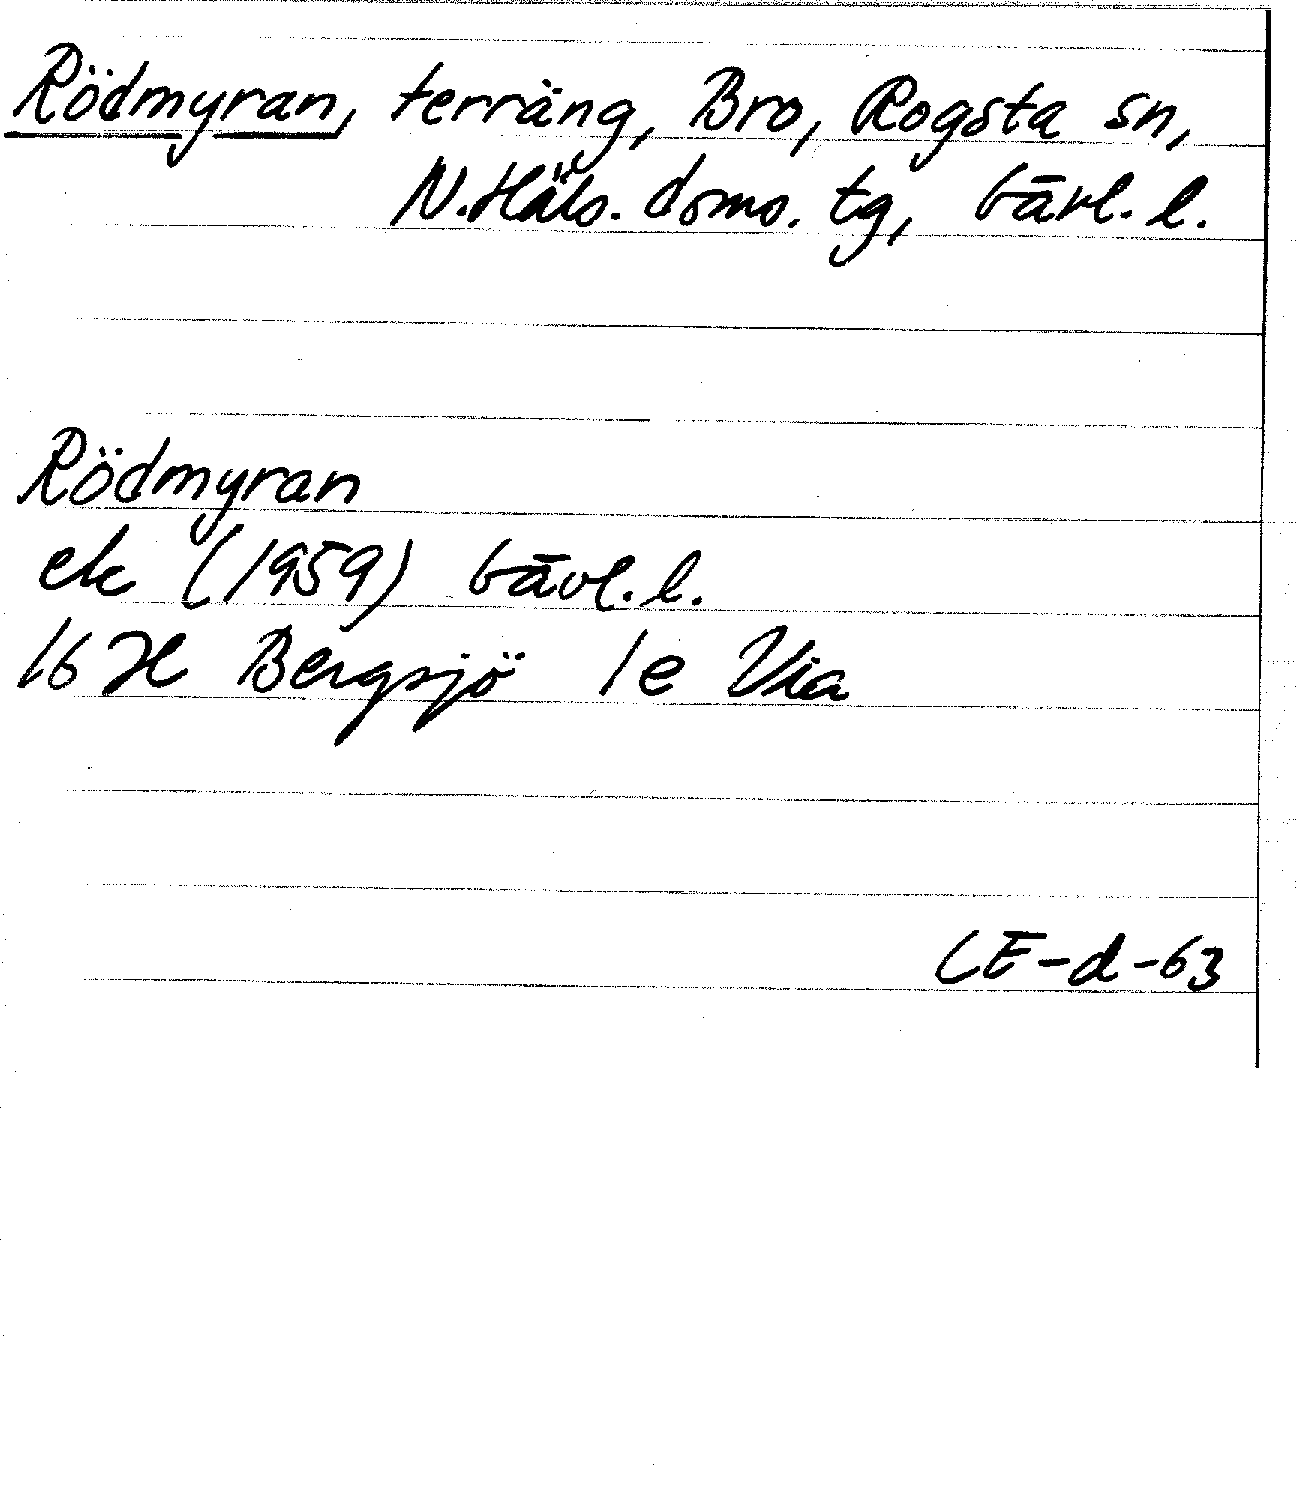 Rödmyran, terräng, Bro, Rogsta sn,
N. Häls. doms. tg, Gävl. l.
Rödmyran
ek (1959) Gävl. l.
16 H Bergsjö 1e Via
CE-d-63